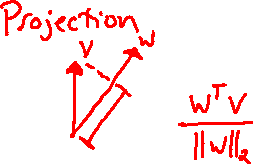 Projection
v w
wᵀv
||w||₂